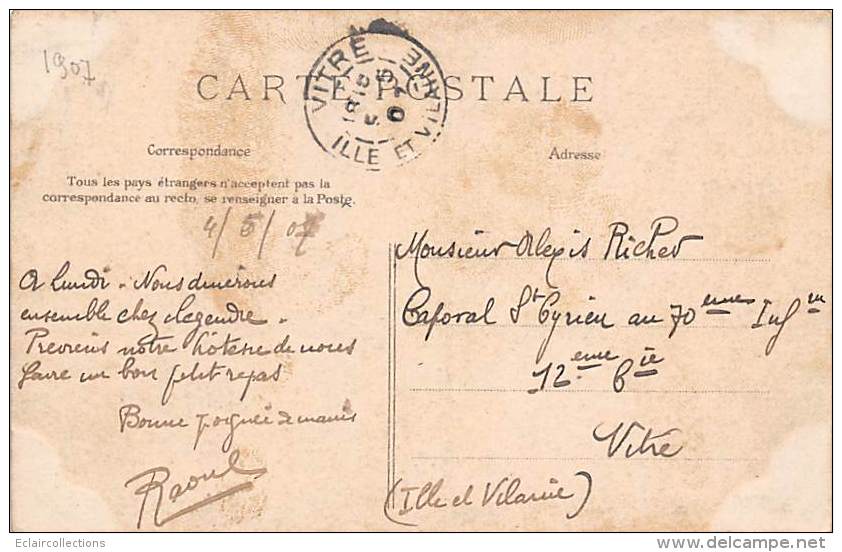 1907
VITRÉ
ILLE ET VILAINE
CARTE POSTALE
Correspondance
Adresse
Tous les pays étrangers n'acceptent pas la
correspondance au recto, se renseigner à la Poste.
4/5/07
A lundi. Nous dinerons
ensemble chez Legendre.
Previens notre hôtesse de nous
faire un bon petit repas
Bonne poignée de mains
Raoul
Monsieur Alexis Richet
Caporal St Cyrien au 70eme Infrie
12eme Cie
Vitré
(Ille et Vilaine)
Eclaircollections
delcampe.net